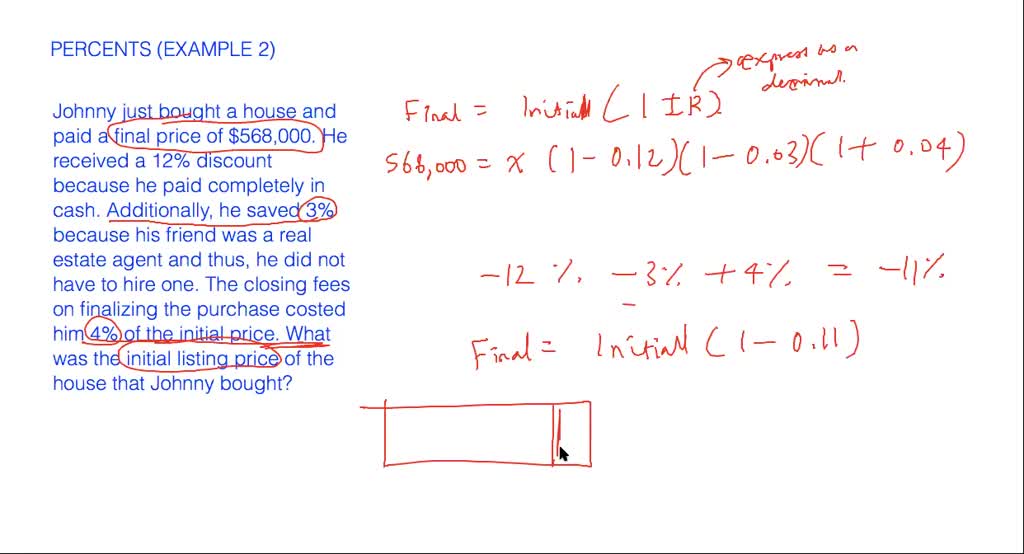 PERCENTS (EXAMPLE 2)
Johnny just bought a house and
paid a final price of $568,000. He
received a 12% discount
because he paid completely in
cash. Additionally, he saved 3%
because his friend was a real
estate agent and thus, he did not
have to hire one. The closing fees
on finalizing the purchase costed
him 4% of the initial price. What
was the initial listing price of the
house that Johnny bought?
express as a
decimal.
Final = Initial ( 1 I R )
568,000 = x (1 - 0.12)(1 - 0.03)(1 + 0.04)
-12 % -3% +4% = -11%
Final = Initial (1 - 0.11)